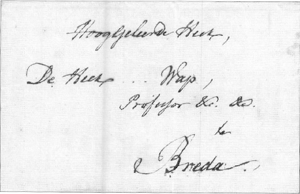 Hooggeleerde Heer,
De Heer ... Wap,
Professor &c. &c.
te
Breda.